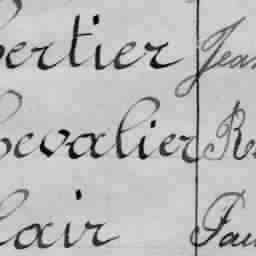 ertier Jean
hevalier Re
lair Pau